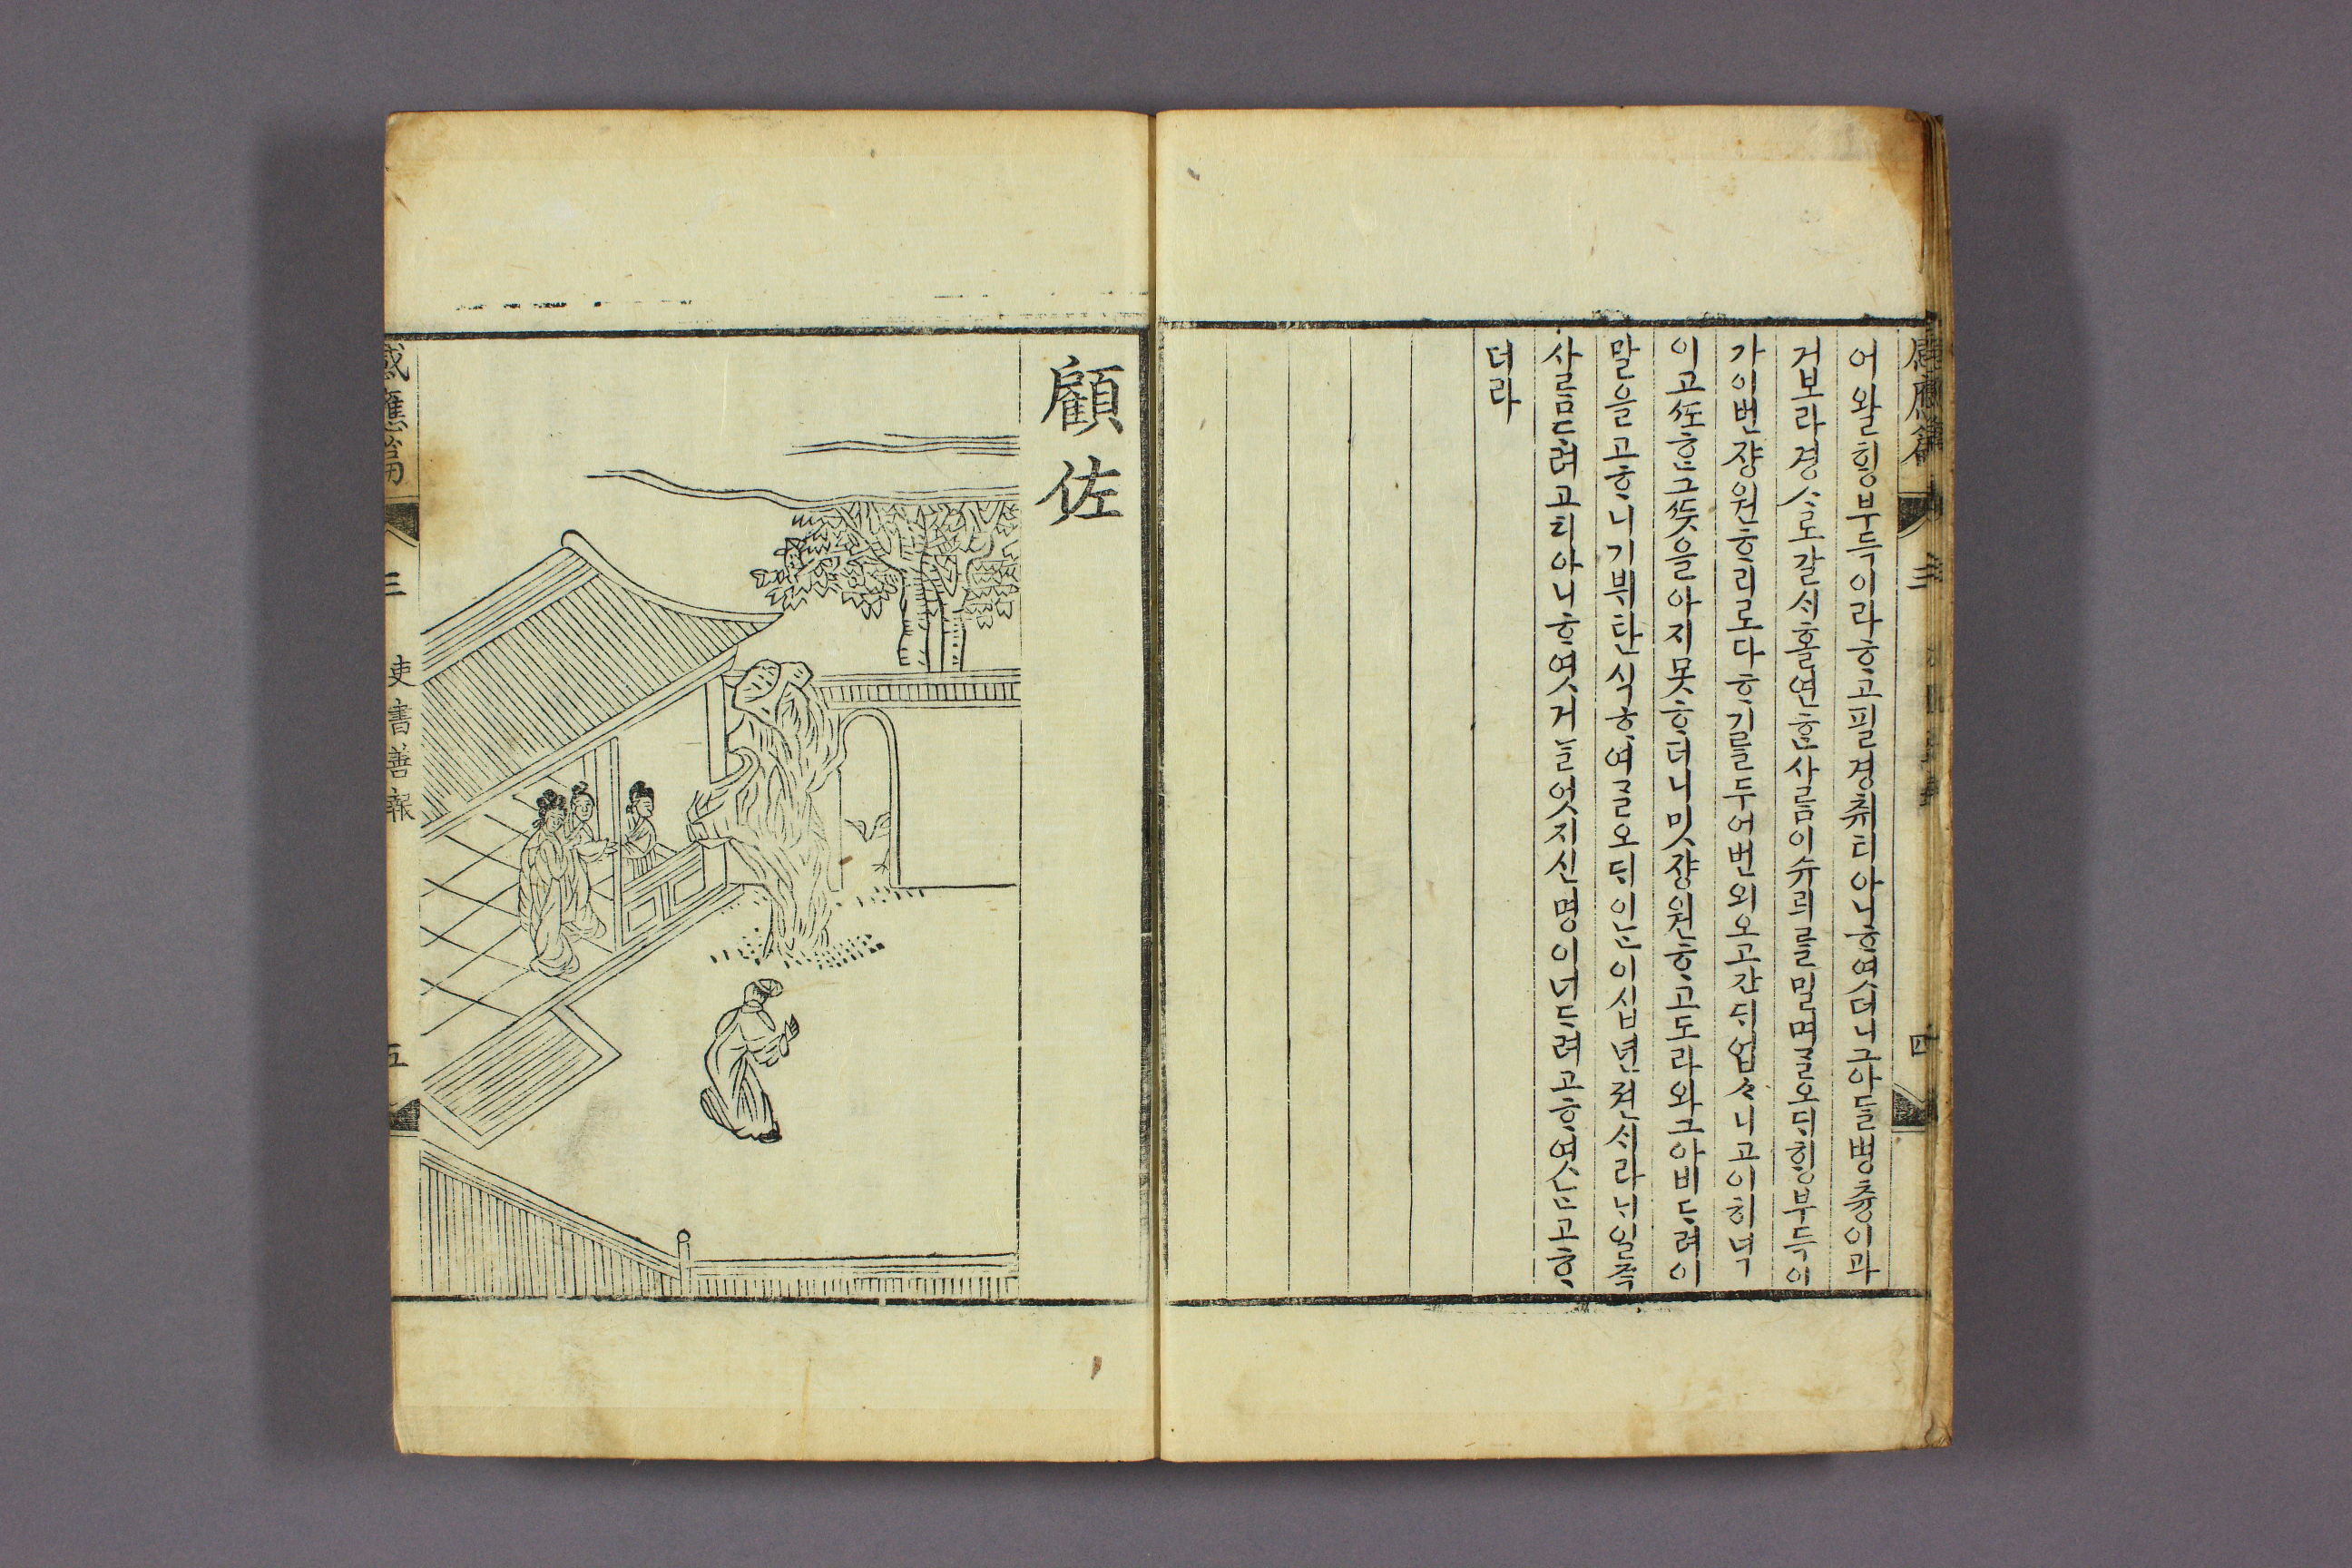 感應篇 三 四
어왈ᄒᆡᆼ부득이라ᄒᆞ고필경취티아니ᄒᆞ엿더니그아ᄃᆞᆯ병츙이과
거보라경ᄉᆞ로갈ᄉᆡ홀연ᄒᆞᆫ사ᄅᆞᆷ이슈ᄅᆡᄅᆞᆯ밀며ᄀᆞᆯ오ᄃᆡᄒᆡᆼ부득이
가이번쟝원ᄒᆞ리로다ᄒᆞ기ᄅᆞᆯ두어번외오고간ᄃᆡ업々니고이히넉
이고ᄯᅩᄒᆞᆫ그ᄯᅳᆺ을아지못ᄒᆞ더니밋쟝원ᄒᆞ고도라와그아비ᄃᆞ려이
말을고ᄒᆞ니기뷔탄식ᄒᆞ여ᄀᆞᆯ오ᄃᆡ이ᄂᆞᆫ이십년젼ᄉᆡ라ᄂᆡ일즉
사ᄅᆞᆷᄃᆞ려고티아니ᄒᆞ엿거늘엇지신명이너ᄃᆞ려고ᄒᆞ엿ᄂᆞᆫ고ᄒᆞ
더라
顧佐
感應篇 三 吏書善報 五